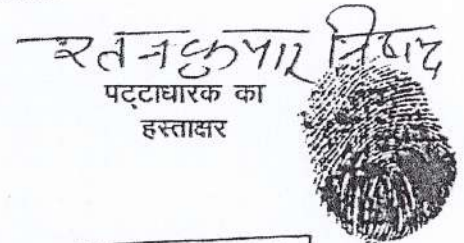 रतनकुमार निषाद
पट्टाधारक का
हस्ताक्षर